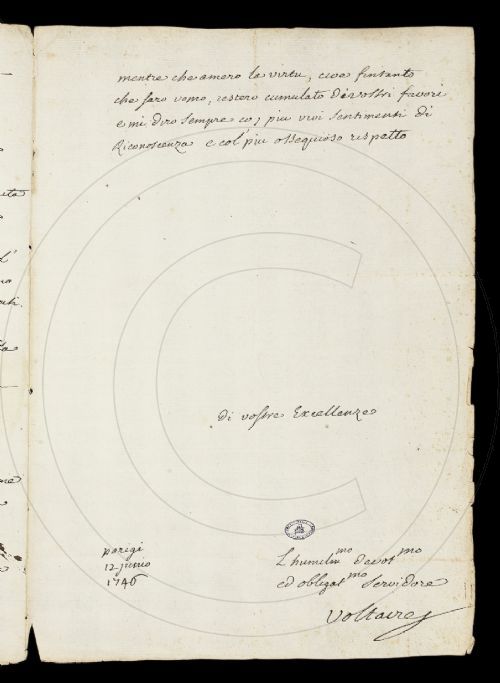 mentre che amero la virtu, cioe fintanto
che saro uomo, restero cumulato di vostri favori
e mi diro sempre co, piu vivi sentimenti di
Riconoscenza e col' piu ossequioso rispetto
di vostre Excellenze
parigi
12 junio
1746
L humiliss mo devot mo
ed obligat mo servidore
Voltaire